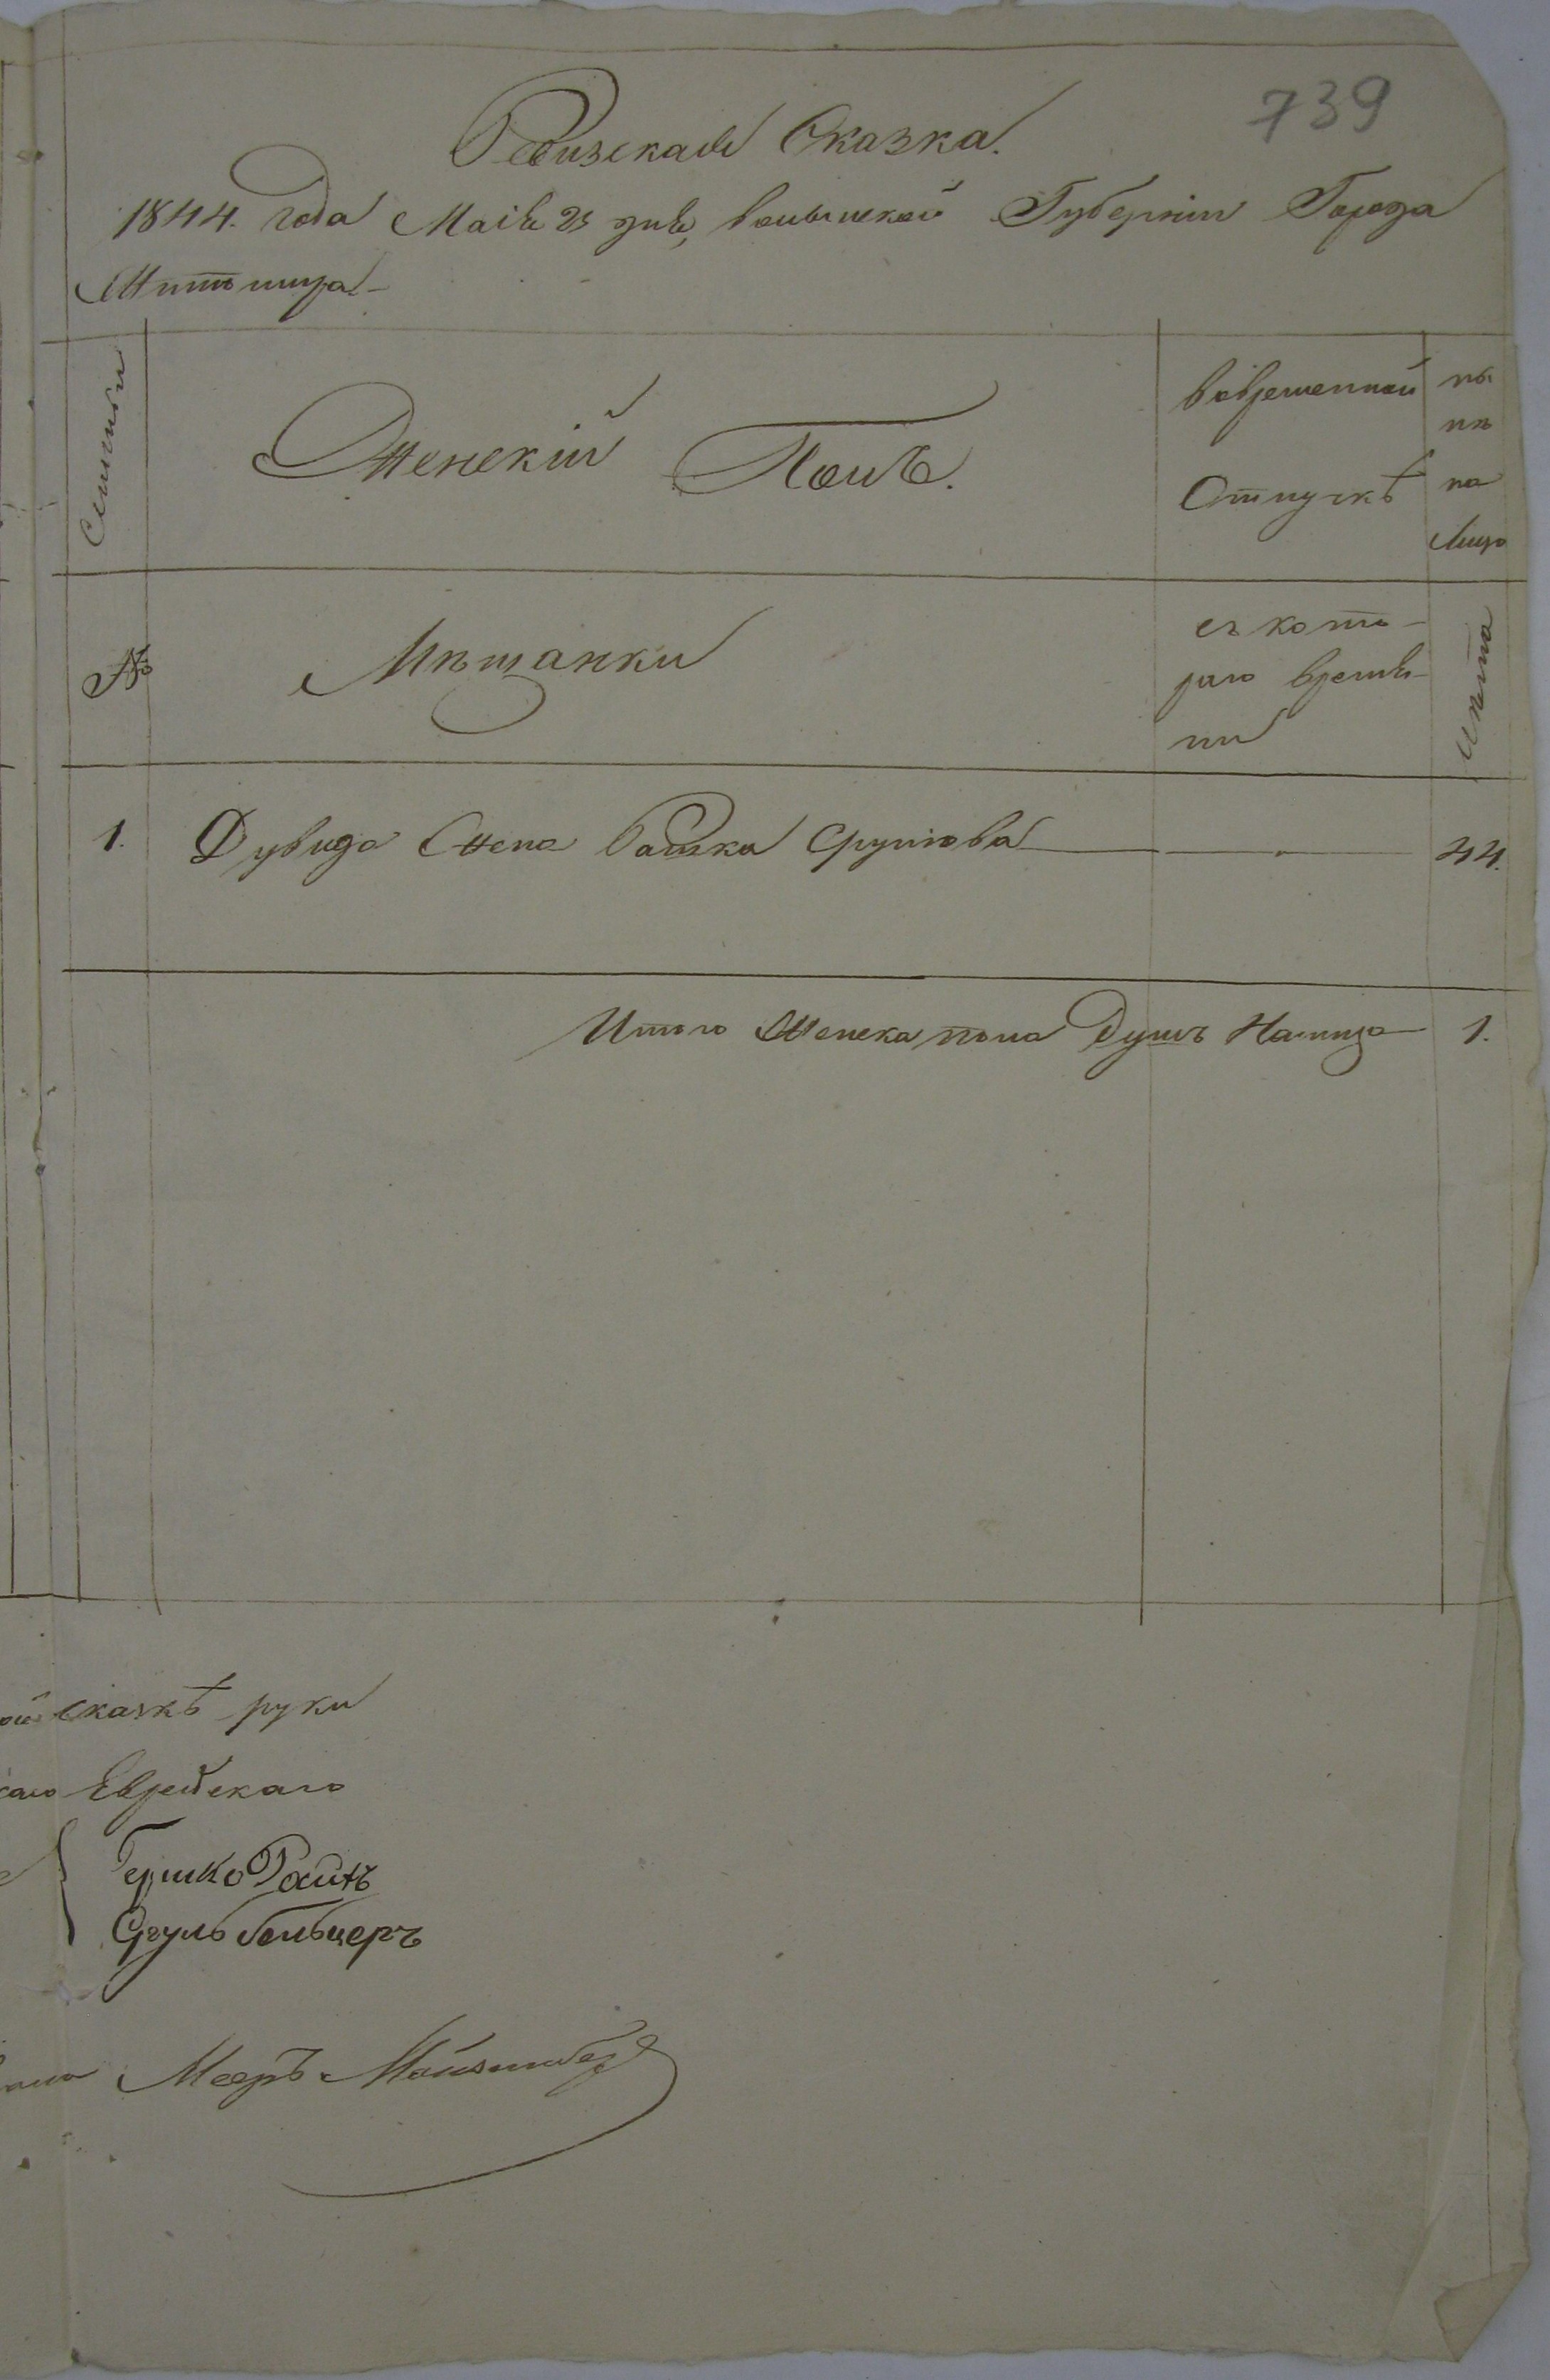 739
Ревизская Сказка.
1844. года Маія 23 дня, волынской Губерніи Города
Житомира
Семьи
Женскій Полъ.
во временной
Отлучкѣ
ны
нѣ
на
лицо
№
Мѣщанки
съ кото-
раго времѣ-
ни
Лѣта
1. Дувида Жена Башка Сруліова 44.
Итого Женска пола Душъ Налицо 1.
сказкѣ руки
Еврейскаго
Гершко
Сруль Гольцеръ
Меэръ